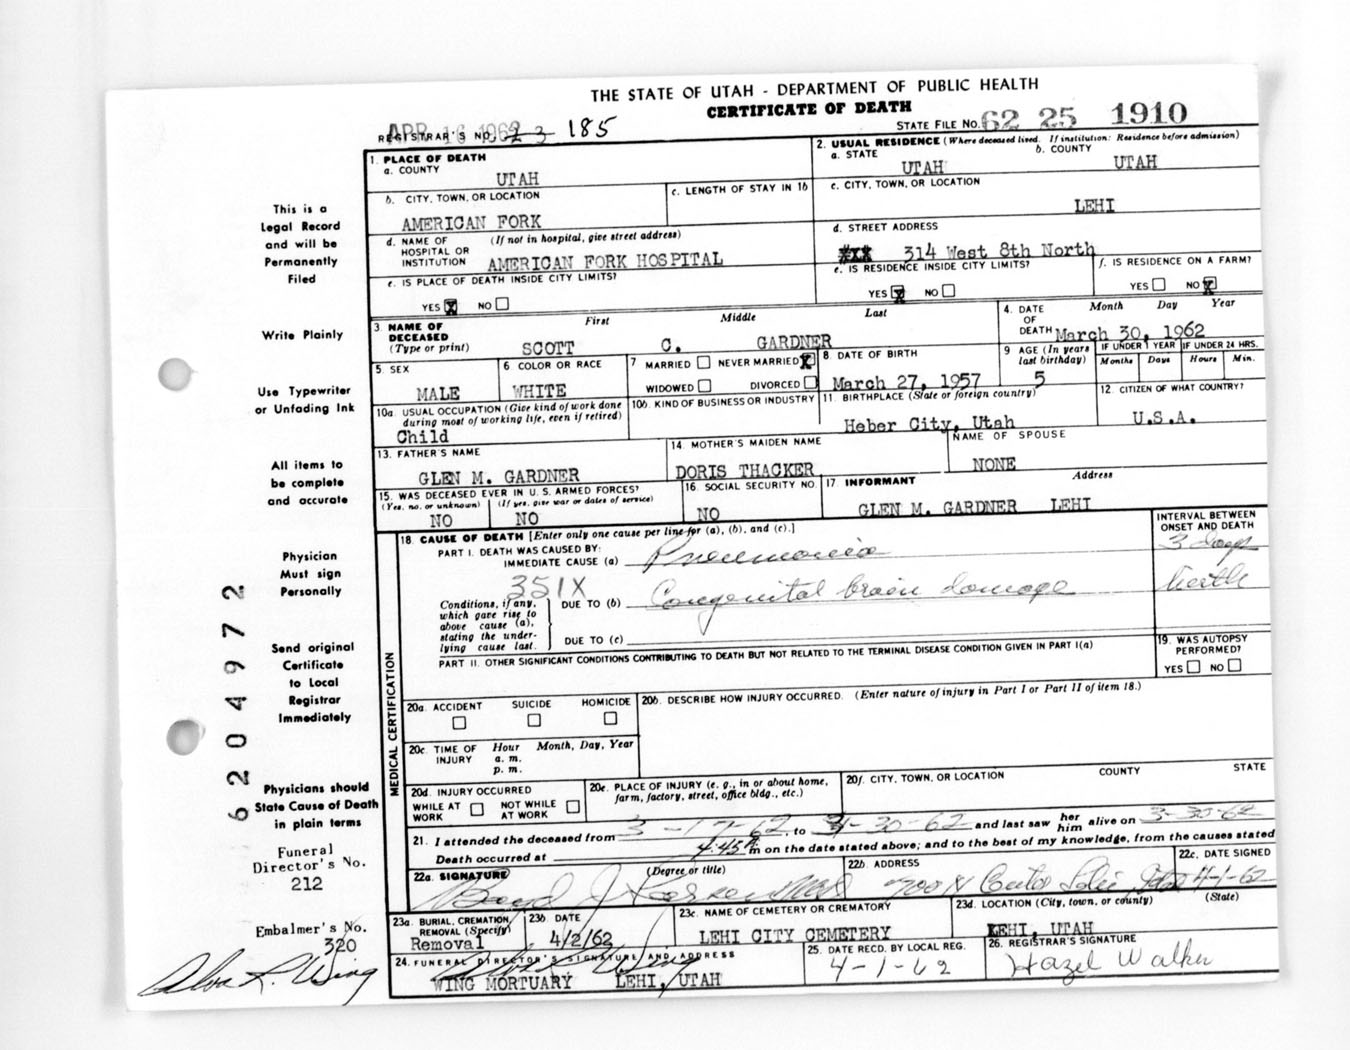 THE STATE OF UTAH - DEPARTMENT OF PUBLIC HEALTH
CERTIFICATE OF DEATH
APR 16 1962
REGISTRAR'S NO. 23 185
STATE FILE NO. 62 25 1910
1. PLACE OF DEATH
a. COUNTY
UTAH
2. USUAL RESIDENCE (Where deceased lived. If institution: Residence before admission)
a. STATE UTAH b. COUNTY UTAH
b. CITY, TOWN, OR LOCATION
AMERICAN FORK
c. LENGTH OF STAY IN 1b
c. CITY, TOWN, OR LOCATION
LEHI
d. NAME OF HOSPITAL OR INSTITUTION (If not in hospital, give street address)
AMERICAN FORK HOSPITAL
d. STREET ADDRESS
314 West 8th North
e. IS PLACE OF DEATH INSIDE CITY LIMITS?
YES X NO
e. IS RESIDENCE INSIDE CITY LIMITS?
YES X NO
f. IS RESIDENCE ON A FARM?
YES NO X
3. NAME OF DECEASED (Type or print)
First Middle Last
SCOTT C. GARDNER
4. DATE OF DEATH Month Day Year
March 30, 1962
5. SEX
MALE
6. COLOR OR RACE
WHITE
7. MARRIED NEVER MARRIED X
WIDOWED DIVORCED
8. DATE OF BIRTH
March 27, 1957
9. AGE (In years last birthday)
5
IF UNDER 1 YEAR IF UNDER 24 HRS.
Months Days Hours Min.
10a. USUAL OCCUPATION (Give kind of work done during most of working life, even if retired)
Child
10b. KIND OF BUSINESS OR INDUSTRY
11. BIRTHPLACE (State or foreign country)
Heber City, Utah
12. CITIZEN OF WHAT COUNTRY?
U.S.A.
13. FATHER'S NAME
GLEN M. GARDNER
14. MOTHER'S MAIDEN NAME
DORIS THACKER
NAME OF SPOUSE
NONE
15. WAS DECEASED EVER IN U.S. ARMED FORCES?
(Yes, no, or unknown) (If yes, give war or dates of service)
NO NO
16. SOCIAL SECURITY NO.
NO
17. INFORMANT Address
GLEN M. GARDNER LEHI
MEDICAL CERTIFICATION
18. CAUSE OF DEATH [Enter only one cause per line for (a), (b), and (c).]
INTERVAL BETWEEN ONSET AND DEATH
PART I. DEATH WAS CAUSED BY:
IMMEDIATE CAUSE (a) Pneumonia 3 days
351X
Conditions, if any, which gave rise to above cause (a), stating the underlying cause last.
DUE TO (b) Congenital brain damage birth
DUE TO (c)
PART II. OTHER SIGNIFICANT CONDITIONS CONTRIBUTING TO DEATH BUT NOT RELATED TO THE TERMINAL DISEASE CONDITION GIVEN IN PART I(a)
19. WAS AUTOPSY PERFORMED?
YES NO
20a. ACCIDENT SUICIDE HOMICIDE
20b. DESCRIBE HOW INJURY OCCURRED. (Enter nature of injury in Part I or Part II of item 18.)
20c. TIME OF INJURY Hour Month, Day, Year
a. m.
p. m.
20d. INJURY OCCURRED
WHILE AT WORK NOT WHILE AT WORK
20e. PLACE OF INJURY (e. g., in or about home, farm, factory, street, office bldg., etc.)
20f. CITY, TOWN, OR LOCATION COUNTY STATE
21. I attended the deceased from 3-17-62, to 3-30-62 and last saw her him alive on 3-30-62
Death occurred at 4:45 A m on the date stated above; and to the best of my knowledge, from the causes stated
22a. SIGNATURE (Degree or title)
Boyd J Larsen MD
22b. ADDRESS
700 N Center Lehi, Utah
22c. DATE SIGNED
4-1-62
23a. BURIAL, CREMATION REMOVAL (Specify)
Removal
23b. DATE
4/2/62
23c. NAME OF CEMETERY OR CREMATORY
LEHI CITY CEMETERY
23d. LOCATION (City, town, or county) (State)
LEHI, UTAH
24. FUNERAL DIRECTOR'S SIGNATURE AND ADDRESS
Alva R. Wing
WING MORTUARY LEHI, UTAH
25. DATE RECD. BY LOCAL REG.
4-1-62
26. REGISTRAR'S SIGNATURE
Hazel Walker
This is a
Legal Record
and will be
Permanently
Filed
Write Plainly
Use Typewriter
or Unfading Ink
All items to
be complete
and accurate
Physician
Must sign
Personally
Send original
Certificate
to Local
Registrar
Immediately
Physicians should
State Cause of Death
in plain terms
Funeral
Director's No.
212
Embalmer's No.
320
Alva R. Wing
6204972